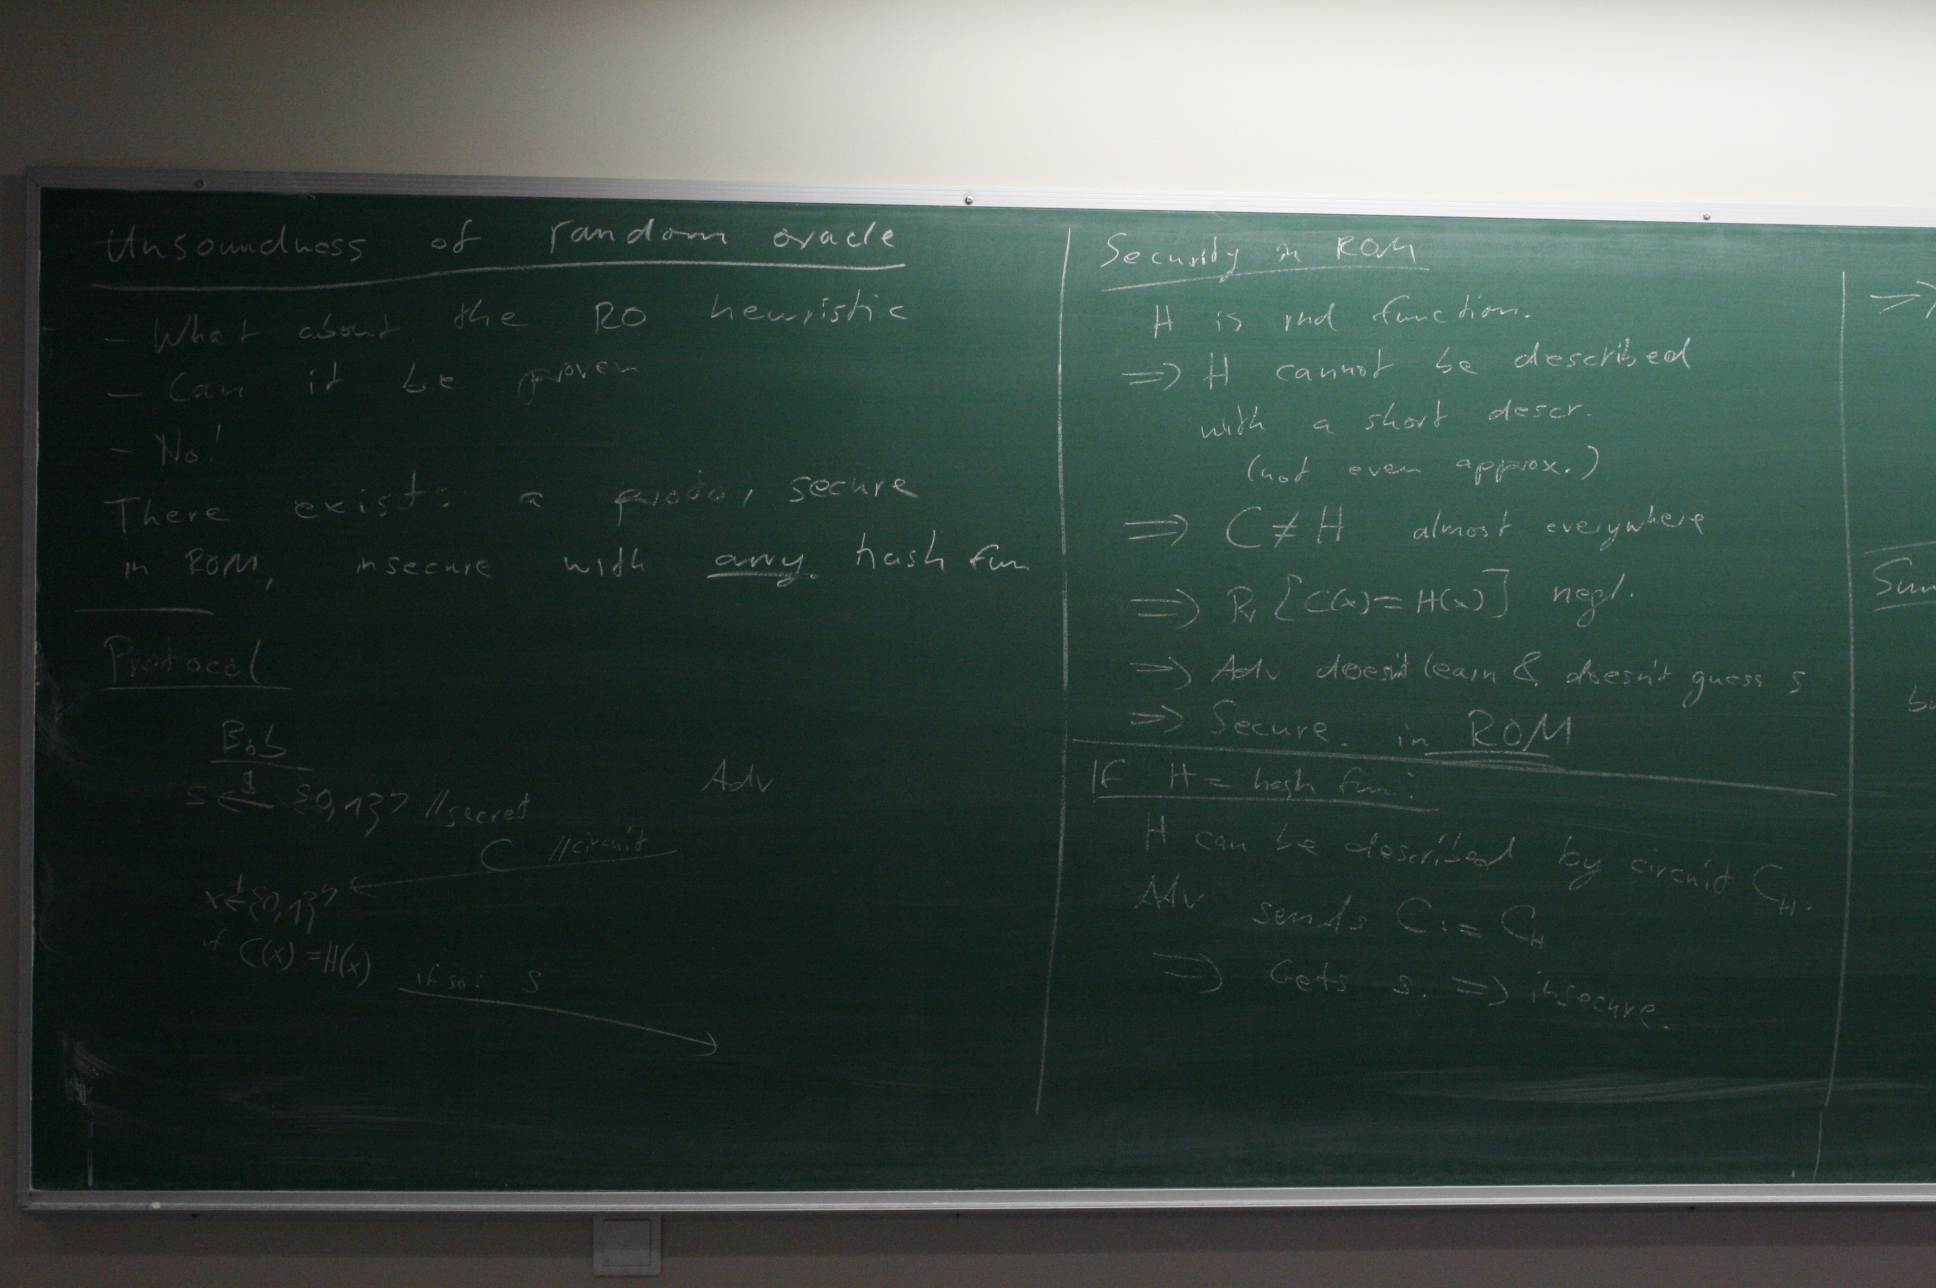 Unsoundness of random oracle
- What about the RO heuristic
- Can it be proven
- No!
There exists a proto, secure
in ROM, insecure with any hash fun
Protocol
Bob
Adv
s <-$ {0,1}^n //secret
C //circuit
x <-$ {0,1}^n
if C(x) = H(x)
if so: s
Security in ROM
H is rnd function.
=> H cannot be described
with a short descr.
(not even approx.)
=> C ≠ H almost everywhere
=> Pr[C(x) = H(x)] negl.
=> Adv doesn't learn & doesn't guess s
=> Secure in ROM
If H = hash fun:
H can be described by circuit C_H.
Adv sends C := C_H
=> Gets s. => insecure.
=>